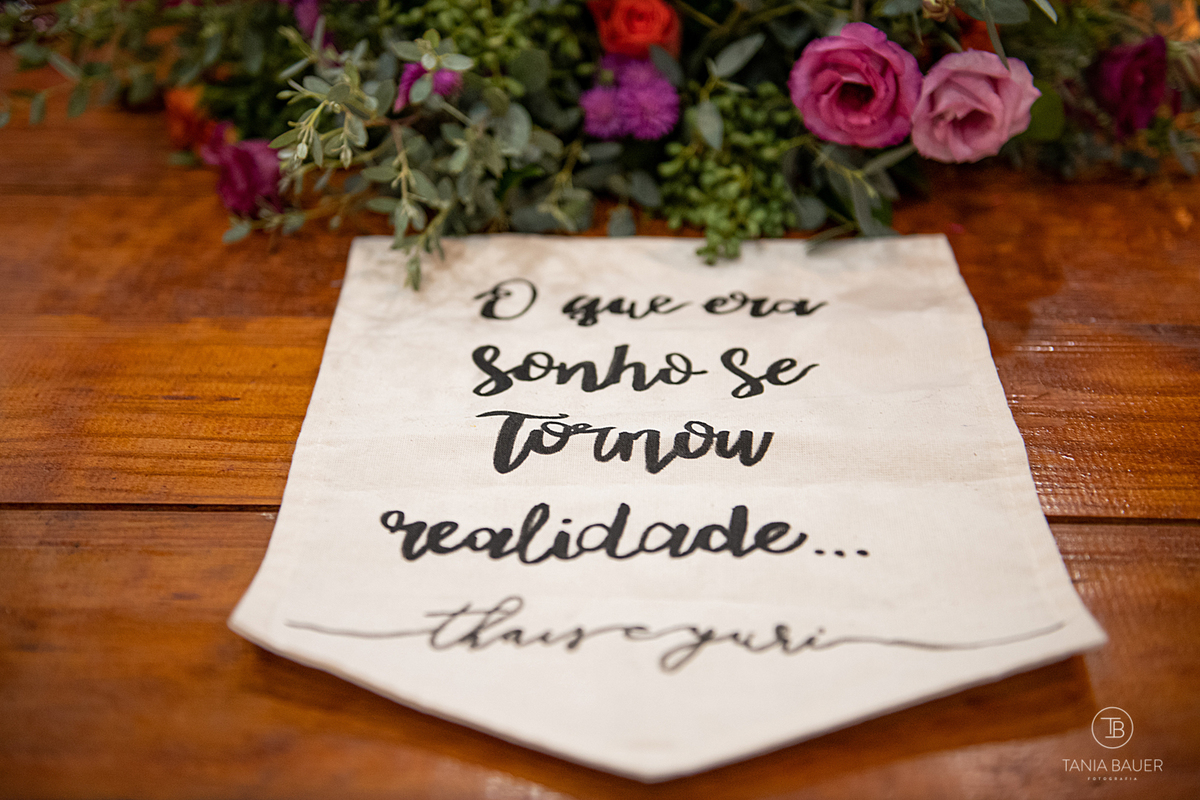 O que era
sonho se
Tornou
realidade...
thais e yuri
TB
TANIA BAUER
FOTOGRAFIA